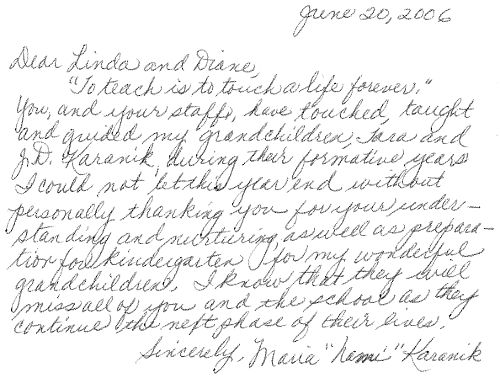 June 20, 2006
Dear Linda and Diane,
"To teach is to touch a life forever."
You, and your staffs, have touched, taught
and guided my grandchildren, Tara and
J.D. Karanik during their formative years
I could not let this year end without
personally thanking you for your under-
standing and nurturing, as well as prepara-
tion for kindergarten for my wonderful
grandchildren. I know that they will
miss all of you and the school as they
continue the next phase of their lives.
Sincerely, Maria "Nami" Karanik